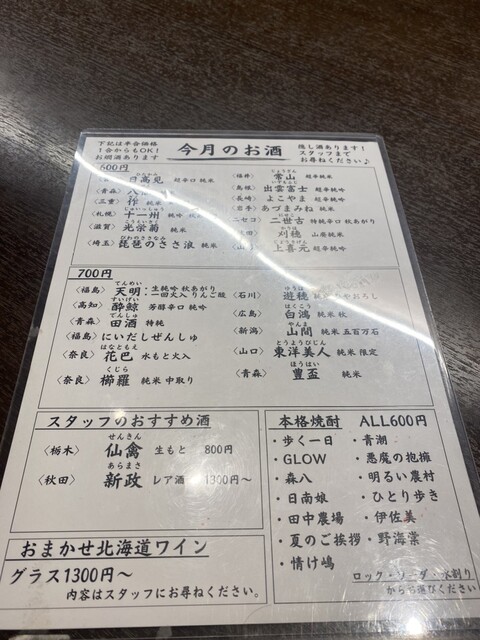 下記は半合価格
1合からもOK!
お燗酒あります
今月のお酒
隠し酒あります!
スタッフまで
お尋ねください♪
600円
日高見 超辛口 純米
〈青森〉
〈三重〉 作 純米
〈札幌〉 十一州 純吟
じゅういっしゅう
〈滋賀〉 光栄菊 純米
こうえいぎく
びわのささなみ
〈埼玉〉 琵琶のささ浪 純米
じょうざん
〈福井〉 常山 超辛純米
いずもふじ
〈島根〉 出雲富士 超辛純吟
〈長崎〉 よこやま 超辛純吟
〈岩手〉 あづまみね 純吟
にせこ
ニセコ〉 二世古 特純辛口 秋あがり
かりほ
刈穂 山廃純米
じょうきげん
上喜元 超辛純吟
700円
てんめい
〈福島〉 天明 生純吟 秋あがり
:一回火入 りんご酸
すいげい
〈高知〉 酔鯨 芳醇辛口 純吟
でんしゅ
〈青森〉 田酒 特純
福島〉 にいだしぜんしゅ
はなともえ
〈奈良〉 花巴 水もと火入
くじら
〈奈良〉 櫛羅 純米 中取り
ゆうほ
〈石川〉 遊穂
はくこう
〈広島〉 白鴻 純米 秋
やんま
〈新潟〉 山間 純米 五百万石
とうようびじん
〈山口〉 東洋美人 純米 限定
ほうはい
〈青森〉 豊盃 純米
スタッフのおすすめ酒
せんきん
〈栃木〉 仙禽 生もと 800円
あらまさ
〈秋田〉 新政 レア酒 1300円〜
おまかせ北海道ワイン
グラス1300円〜
内容はスタッフにお尋ねください。
本格焼酎 ALL600円
・歩く一日
・GLOW
・森八
・日南娘
・田中農場
・夏のご挨拶
・情け嶋
・青潮
・悪魔の抱擁
・明るい農村
・ひとり歩き
・伊佐美
・野海棠
ロック・ソーダ・水割り
からお選びください